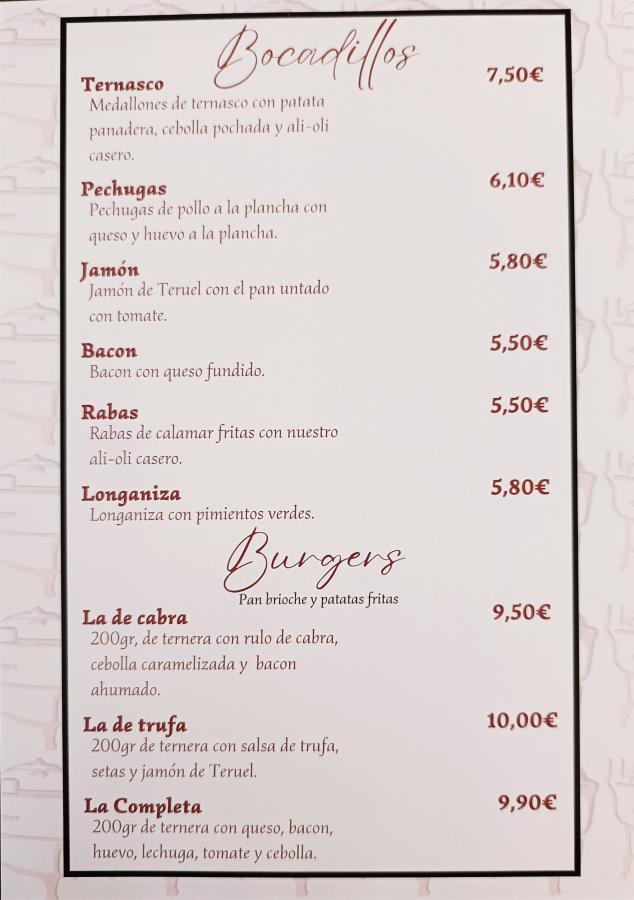 Bocadillos
Ternasco 7,50€
Medallones de ternasco con patata
panadera, cebolla pochada y ali-oli
casero.
Pechugas 6,10€
Pechugas de pollo a la plancha con
queso y huevo a la plancha.
Jamón 5,80€
Jamón de Teruel con el pan untado
con tomate.
Bacon 5,50€
Bacon con queso fundido.
Rabas 5,50€
Rabas de calamar fritas con nuestro
ali-oli casero.
Longaniza 5,80€
Longaniza con pimientos verdes.
Burgers
Pan brioche y patatas fritas
La de cabra 9,50€
200gr, de ternera con rulo de cabra,
cebolla caramelizada y bacon
ahumado.
La de trufa 10,00€
200gr de ternera con salsa de trufa,
setas y jamón de Teruel.
La Completa 9,90€
200gr de ternera con queso, bacon,
huevo, lechuga, tomate y cebolla.